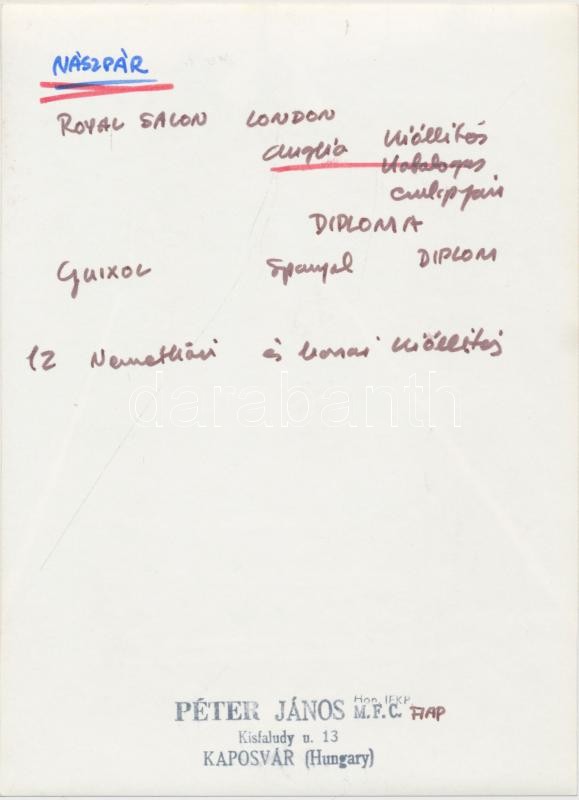 NÁSZPÁR
ROYAL SALON LONDON
Anglia Kiállítás
Katalogus
DIPLOMA
GUIXOL Spanyol DIPLOM
12 Nemzetközi és hazai kiállítás
darabanth
PÉTER JÁNOS M.F.C. FIAP
Hon. IFKP
Kisfaludy u. 13
KAPOSVÁR (Hungary)